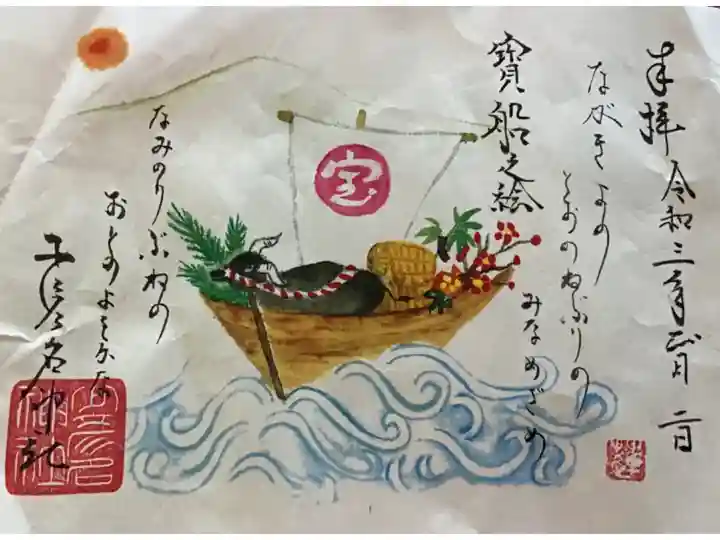 奉拝 令和三年正月二日
ながきよの
とおのねぶりの
みなめざめ
寳船之絵
宝
なみのりぶねの
おとのよきかな
少彦名神社